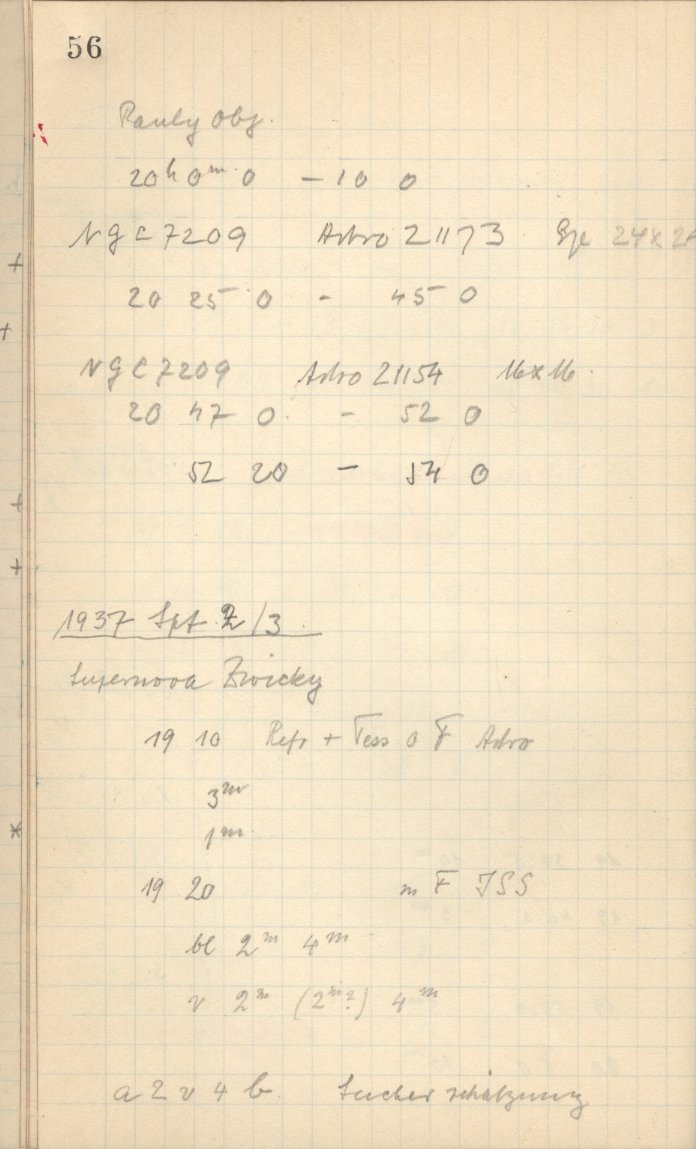 56
Pauly Obj.
20h 0m 0 – 10 0
NGC 7209 Astro 21173 24x24
20 25 0 – 45 0
NGC 7209 Astro 21154 16x16.
20 47 0 – 52 0
52 20 – 54 0
1937 Spt. 2/3
Supernova Zwicky
19 10 Refr + Tess o F Astro
3m
1m
19 20 m F ISS
bl 2m 4m
v 2m (2m?) 4m
a 2 v 4 b. Sucherschätzung